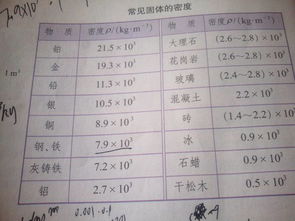 常见固体的密度
物 质 密度ρ/(kg·m⁻³) 物 质 密度ρ/(kg·m⁻³)
铂 21.5×10³ 大理石 (2.6~2.8)×10³
金 19.3×10³ 花岗岩 (2.6~2.8)×10³
铅 11.3×10³ 玻璃 (2.4~2.8)×10³
银 10.5×10³ 混凝土 2.2×10³
铜 8.9×10³ 砖 (1.4~2.2)×10³
钢、铁 7.9×10³ 冰 0.9×10³
灰铸铁 7.2×10³ 石蜡 0.9×10³
铝 2.7×10³ 干松木 0.5×10³
1m³
kg